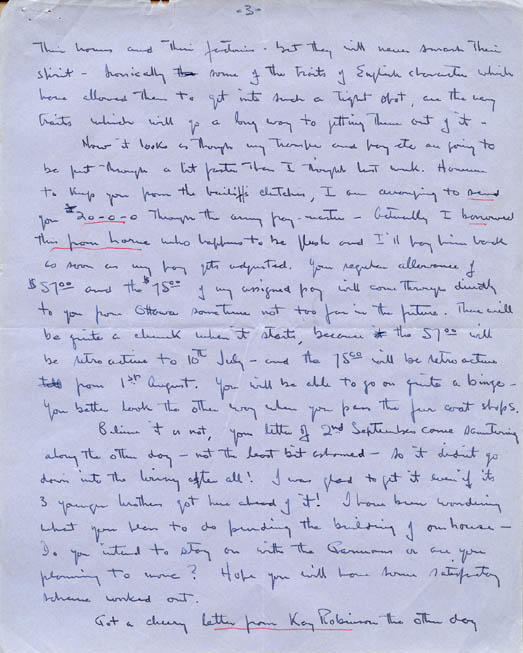 -3-
their homes and their factories. but they will never smash their
spirit - Ironically some of the traits of English character which
have allowed them to get into such a tight spot, are the very
traits which will go a long way to getting them out of it -
Now it looks as though my transfer and pay etc are going to
be put through a lot faster than I thought last week. However
to keep you from the bailiffs clutches, I am arranging to send
you $20-0-0 through the army pay-master - Actually I borrowed
this from Lorne who happens to be flush and I'll pay him back
as soon as my pay gets adjusted. Your regular allowance of
$57.00 and the $75.00 of my assigned pay will come through directly
to you from Ottawa sometime not too far in the future. There will
be quite a chunk when it starts, because the 57.00 will
be retroactive to 10th July - and the 75.00 will be retroactive
from 1st August. You will be able to go on quite a binge -
You better look the other way when you pass the fur coat shops.
Believe it or not, your letter of 2nd September came sauntering
along the other day - not the least bit ashamed - so it didn't go
down into the briny after all! I was glad to get it even if its
3 younger brothers got here ahead of it! I have been wondering
what you plan to do pending the building of our house -
Do you intend to stay on with the or are you
planning to move? Hope you will have some satisfactory
scheme worked out.
Got a cheery letter from Kay Robinson the other day